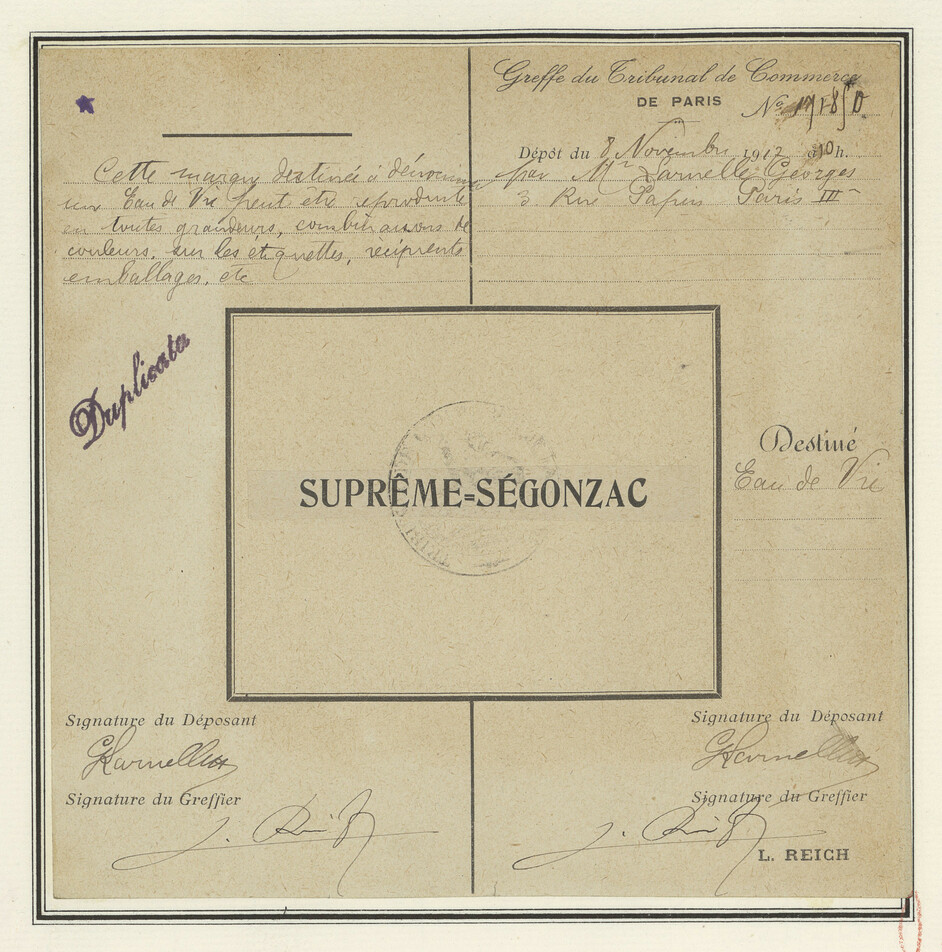 Cette marque destinée à dénommer
une Eau de Vie peut être reproduite
en toutes grandeurs, combinaisons de
couleurs, sur les etiquettes, récipients
emballages, etc
Duplicata
Greffe du Tribunal de Commerce
DE PARIS
No
Dépôt du 8 Novembre 1912 à 10 h.
par Mr Larnelle Georges
3 Rue Papin Paris III
SUPRÊME=SÉGONZAC
Destiné
Eau de Vie
Signature du Déposant
Signature du Greffier
Signature du Déposant
Signature du Greffier
L. REICH